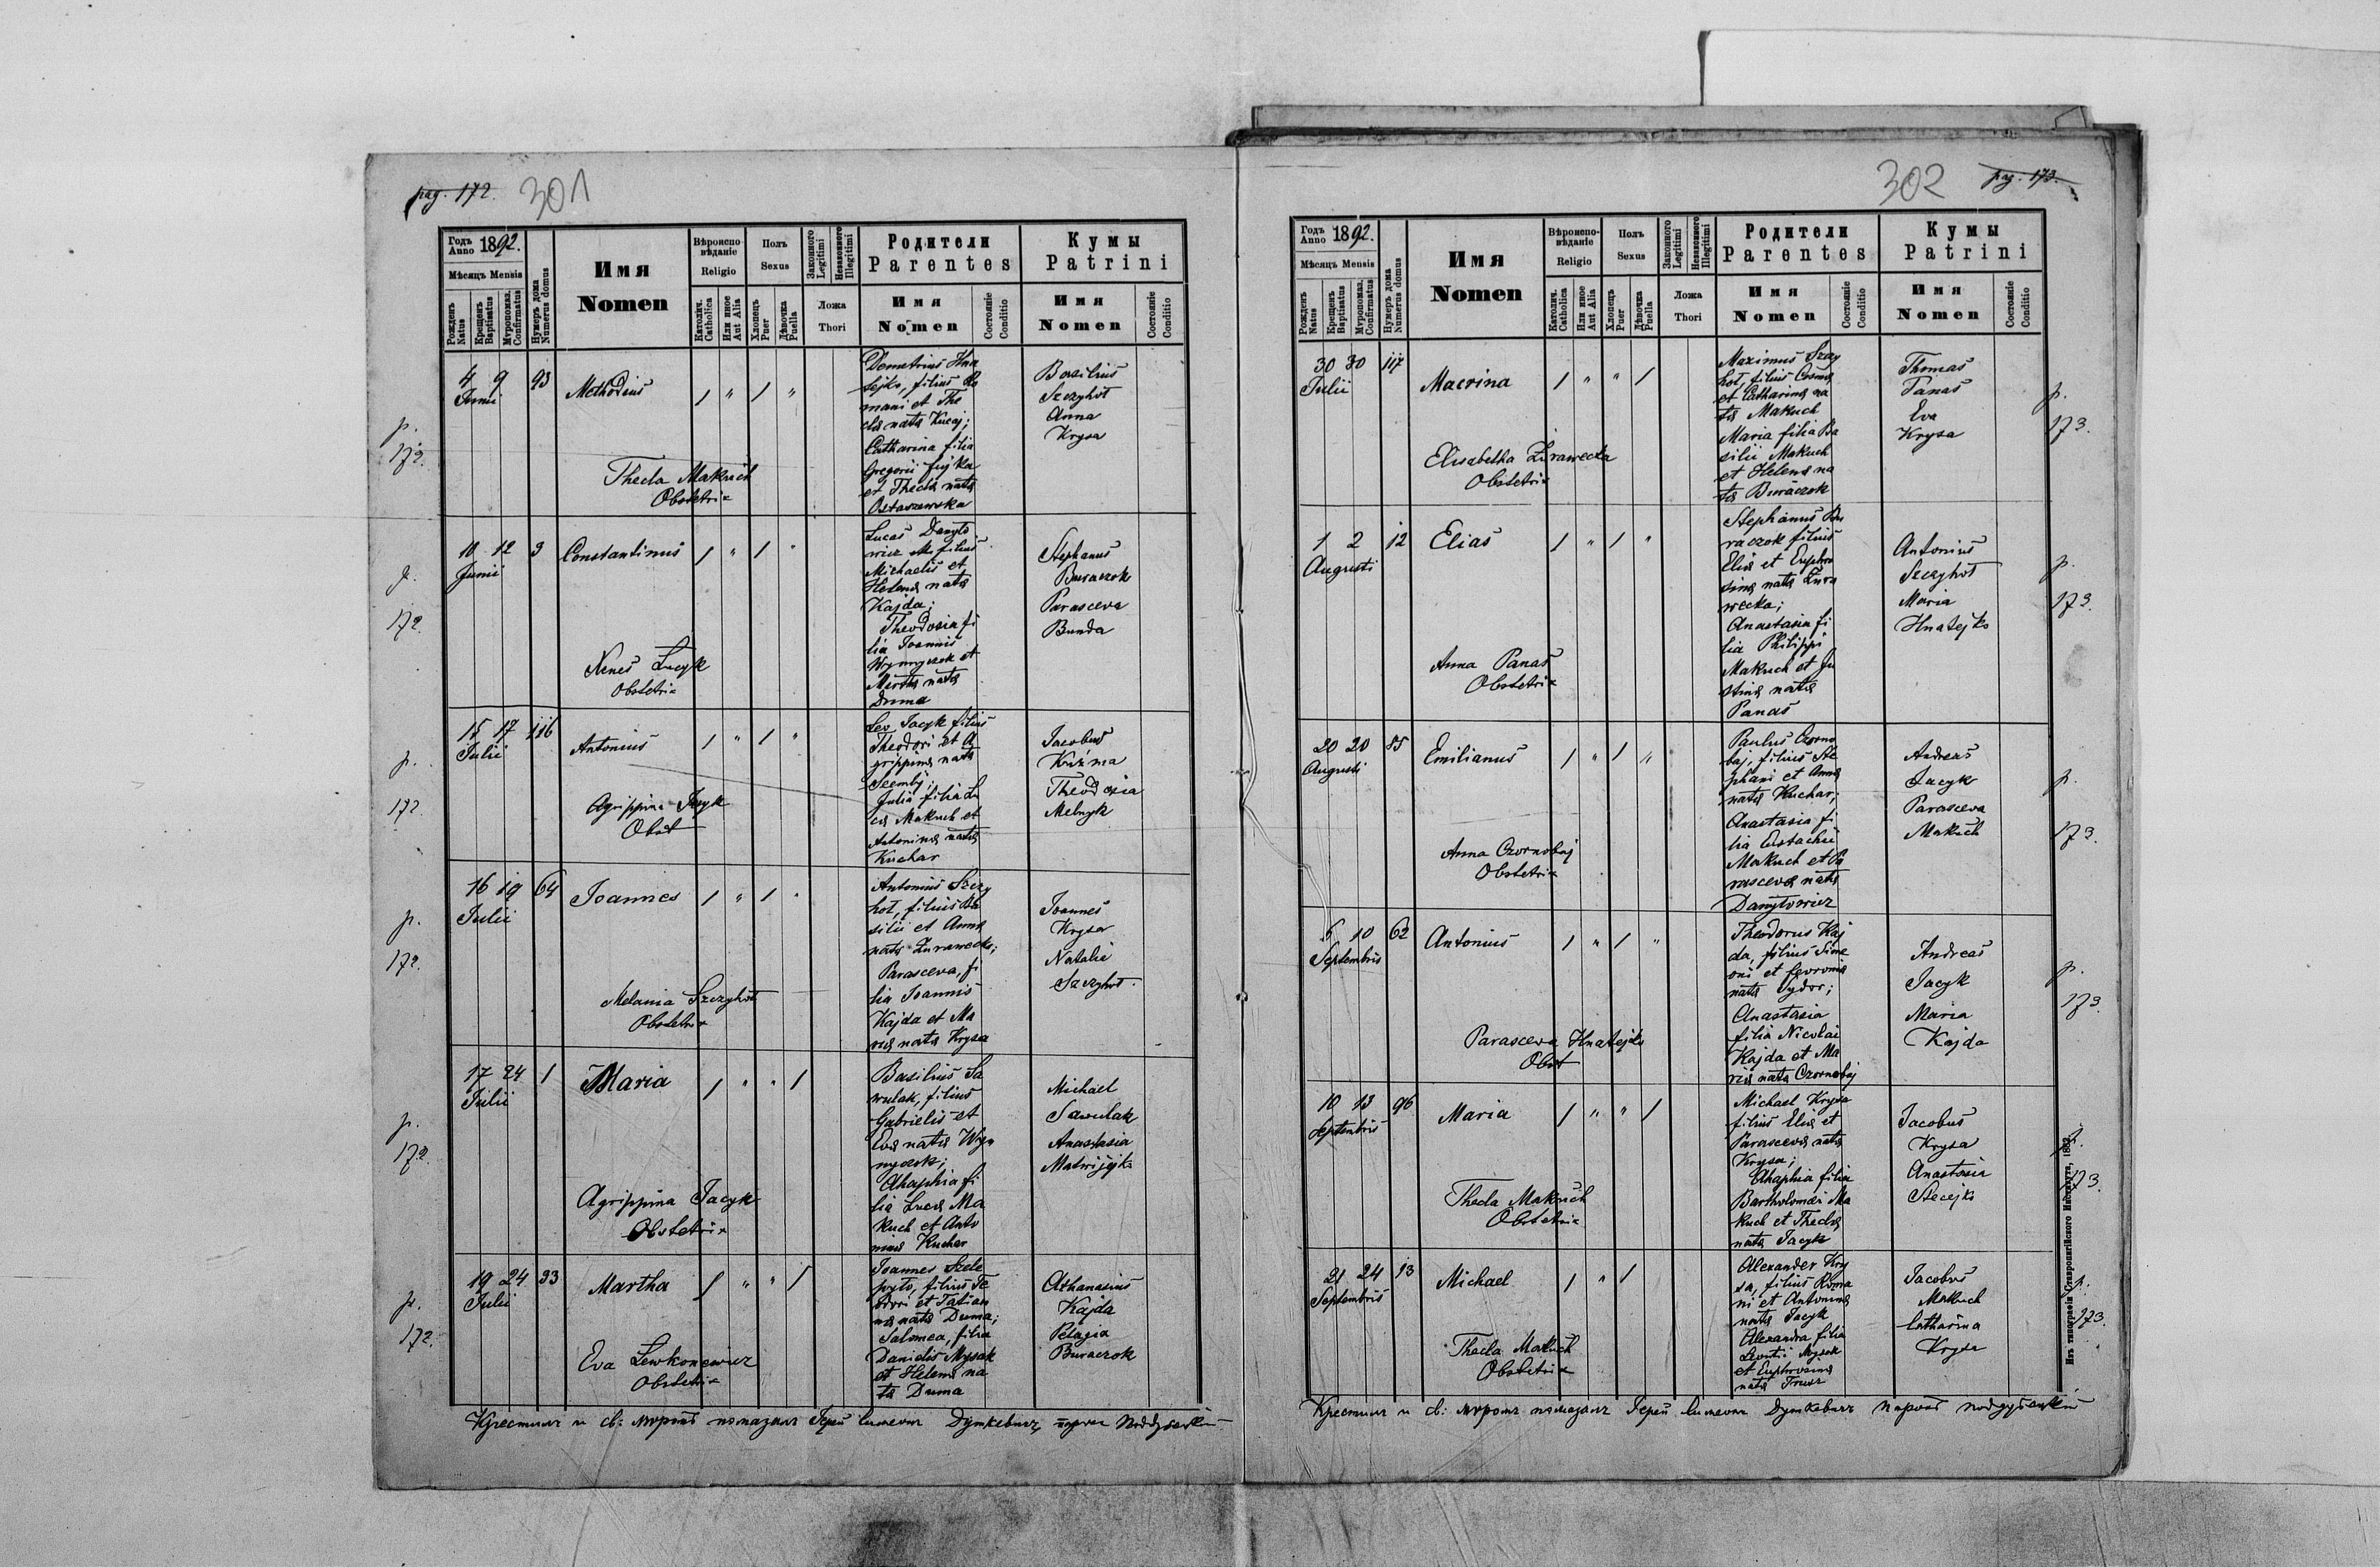 pag. 172.
301
Годъ Anno 1892.
Мѣсяцъ Mensis
Рожденъ Natus
Крещенъ Baptisatus
Мѵропомаз. Confirmatus
Нумеръ дома Numerus domus
Имя
Nomen
Вѣроиспо-
вѣданіе
Religio
Католич. Catholica
Или иное Aut Alia
Полъ
Sexus
Хлопецъ Puer
Дѣвочка Puella
Законного Legitimi
Незаконного Illegitimi
Ложа
Thori
Родители
Parentes
Имя
Nomen
Состояніе Conditio
Кумы
Patrini
Имя
Nomen
Состояніе Conditio
p.
172.
4 9 93
Junii
Methodius
1 " 1 "
Thecla Makuch
Obstetrix
Demetrius Hna
tejko, filius Ro
mani et The
cla nata Kucaj;
Catharina filia
Gregorii
et Thecla nata
Ostaszewska
Basilius
Szczyhoł
Anna
Krysa
p.
172.
10 12 3
Junii
Constantinus
1 " 1 "
Obstetrix
Lucas Danyło
wicz filius
Michaelis et
Helena nata
Kajda;
Theodosia fi
lia Joannis
Wynnyczok et
Martha nata
Duma
Stephanus
Buraczok
Parasceva
Bunda
p.
172.
15 17 116
Julii
Antonius
1 " 1 "
Agrippina Jacyk
Obst
Leo Jacyk filius
Theodori et A
grippina nata
Julia filia Lu
ca Makuch et
Antonina nata
Kuchar
Jacobus
Kuźma
Theodosia
Melnyk
p.
172.
16 19 64
Julii
Joannes
1 " 1 "
Melania Szczyhoł
Obstetrix
Antonius Szczy
hoł, filius Ba
silii et Anna
nata Żurawecka;
Parasceva, fi
lia Joannis
Kajda et Ma
ria nata Krysa
Joannes
Krysa
Natalia
Szczyhoł.
p.
172.
17 24 1
Julii
Maria
1 " " 1
Agrippina Jacyk
Obstetrix
Basilius Sa
wulak, filius
Gabrielis et
Eva nata Wyn
nyczok;
Ahaphia fi
lia Luca Ma
kuch et Anto
nina Kuchar
Michael
Sawulak
Anastasia
Matwijejko
p.
172.
19 24 33
Julii
Martha
1 " " 1
Eva Lewkonewicz
Obstetrix
Joannes Szele
pyło, filius Te
odori et Tatian
na nata Duma;
Salomea, filia
Danielis Mysak
et Helena na
ta Duma
Athanasius
Kajda
Pelagia
Buraczok
Крестилъ и св: мѵромъ помазалъ Іерей Симеонъ Дуткевичъ,
302
pag. 173.
Годъ Anno 1892.
Мѣсяцъ Mensis
Рожденъ Natus
Крещенъ Baptisatus
Мѵропомаз. Confirmatus
Нумеръ дома Numerus domus
Имя
Nomen
Вѣроиспо-
вѣданіе
Religio
Католич. Catholica
Или иное Aut Alia
Полъ
Sexus
Хлопецъ Puer
Дѣвочка Puella
Законного Legitimi
Незаконного Illegitimi
Ложа
Thori
Родители
Parentes
Имя
Nomen
Состояніе Conditio
Кумы
Patrini
Имя
Nomen
Состояніе Conditio
30 30 117
Julii
Macrina
1 " " 1
Elisabetha Żurawecka
Obstetrix
Maximus Szczy
hoł, filius Cosma
et Catharina na
ta Makuch
Maria filia Ba
silii Makuch
et Helena na
ta Buraczok
Thomas
Panas
Eva
Krysa
p.
173.
1 2 12
Augusti
Elias
1 " 1 "
Anna Panas
Obstetrix
Stephanus Bu
raczok filius
Elia et Euphro
sina nata Żura
wecka;
Anastasia fi
lia Philippi
Makuch et Ju
stina nata
Panas
Antonius
Szczyhoł
Maria
Hnatejko
p.
173.
20 20 85
Augusti
Emilianus
1 " 1 "
Anna Czornobaj
Obstetrix
Paulus Czorno
baj, filius Ste
phani et Anna
nata Kuchar;
Anastasia fi
lia Eustachii
Makuch et Pa
rasceva nata
Danyłowicz
Andreas
Jacyk
Parasceva
Makuch
p.
173.
6 10 62
Septembris
Antonius
1 " 1 "
Parasceva Hnatejko
Obst
Theodorus Kaj
da, filius Sime
oni et Fevronia
nata Sydor;
Anastasia
filia Nicolai
Kajda et Ma
ria nata Czornobaj
Andreas
Jacyk
Maria
Kajda
p.
173.
10 13 96
Septembris
Maria
1 " " 1
Thecla Makuch
Obstetrix
Michael Krysa
filius Elia et
Parasceva nata
Krysa;
Ahaphia filia
Bartholomæi Ma
kuch et Thecla
nata Jacyk
Jacobus
Krysa
Anastasia
Stecejko
p.
173.
21 24 13
Septembris
Michael
1 " 1
Thecla Makuch
Obstetrix
Alexander Kry
sa, filius Roma
ni et Antonina
nata Jacyk
Alexandra filia
Leontii Mysak
et Euphrosina
nata
Jacobus
Makuch
Catharina
Krysa
p.
173.
Изъ типографіи Ставропигійского Института, 1882.
Крестилъ и св: мѵромъ помазалъ Іерей Симеонъ Дуткевичъ парохъ поддубецкій